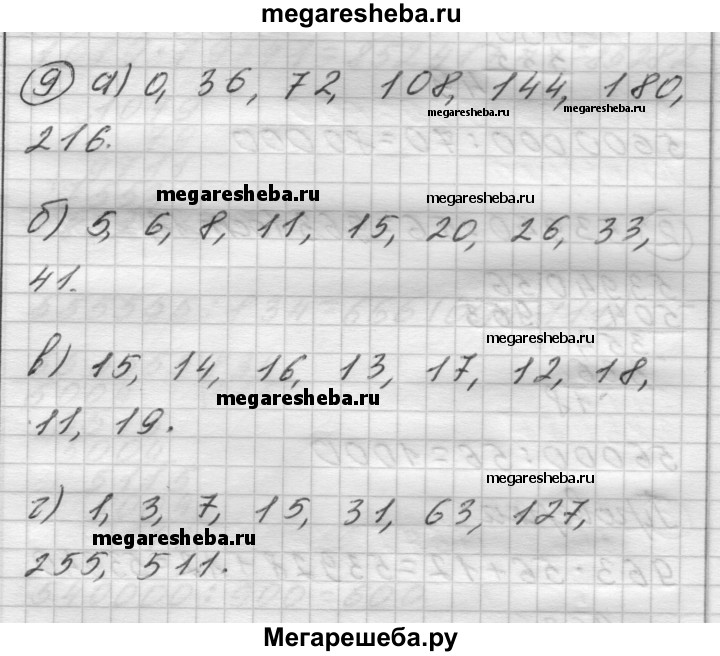 megaresheba.ru
9 а) 0, 36, 72, 108, 144, 180,
megaresheba.ru
megaresheba.ru
216.
megaresheba.ru
megaresheba.ru
б) 5, 6, 8, 11, 15, 20, 26, 33,
41.
megaresheba.ru
в) 15, 14, 16, 13, 17, 12, 18,
megaresheba.ru
11, 19.
megaresheba.ru
г) 1, 3, 7, 15, 31, 63, 127,
megaresheba.ru
255, 511.
Мегарешеба.ру